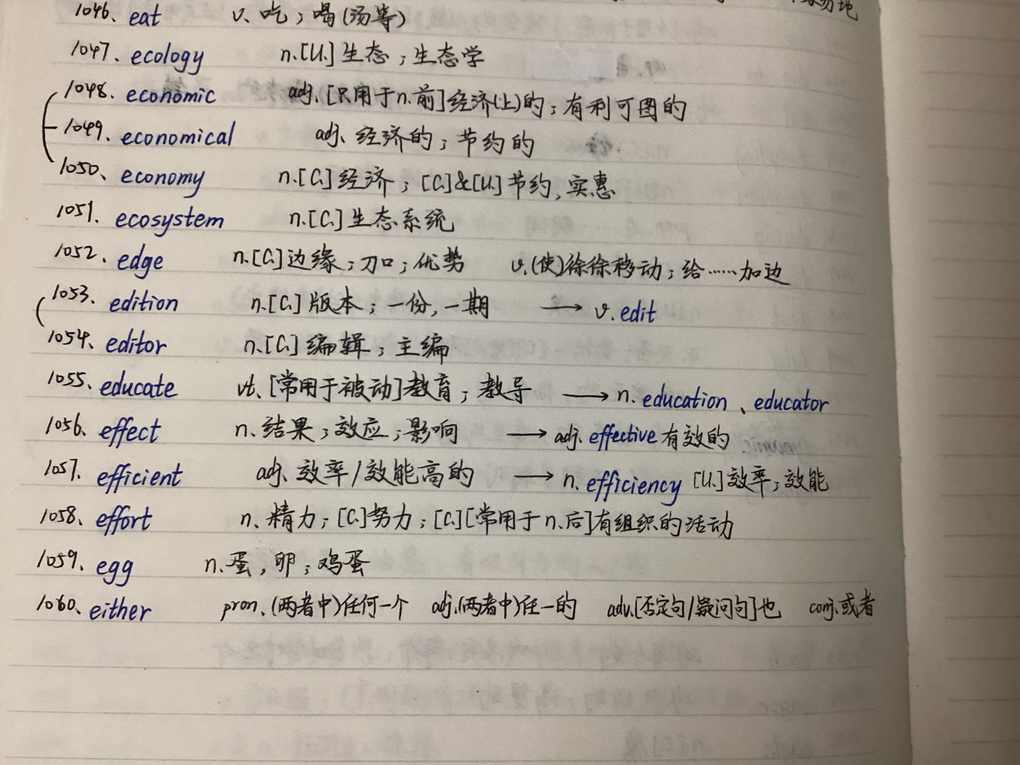 易地
1046. eat v. 吃；喝(汤等)
1047. ecology n.[U.] 生态；生态学
1048. economic adj. [只用于n.前]经济(上)的；有利可图的
1049. economical adj. 经济的；节约的
1050. economy n.[C.] 经济；[C.]&[U.] 节约,实惠
1051. ecosystem n.[C.] 生态系统
1052. edge n.[C.] 边缘；刀口；优势 v.(使)徐徐移动；给……加边
1053. edition n.[C.] 版本；一份,一期 → v.edit
1054. editor n.[C.] 编辑；主编
1055. educate vt. [常用于被动]教育；教导 → n. education、educator
1056. effect n. 结果；效应；影响 → adj. effective 有效的
1057. efficient adj. 效率/效能高的 → n. efficiency [U.] 效率；效能
1058. effort n. 精力；[C.] 努力；[C.][常用于n.后]有组织的活动
1059. egg n. 蛋,卵；鸡蛋
1060. either pron. (两者中)任何一个 adj.(两者中)任一的 adv.[否定句/疑问句]也 conj.或者